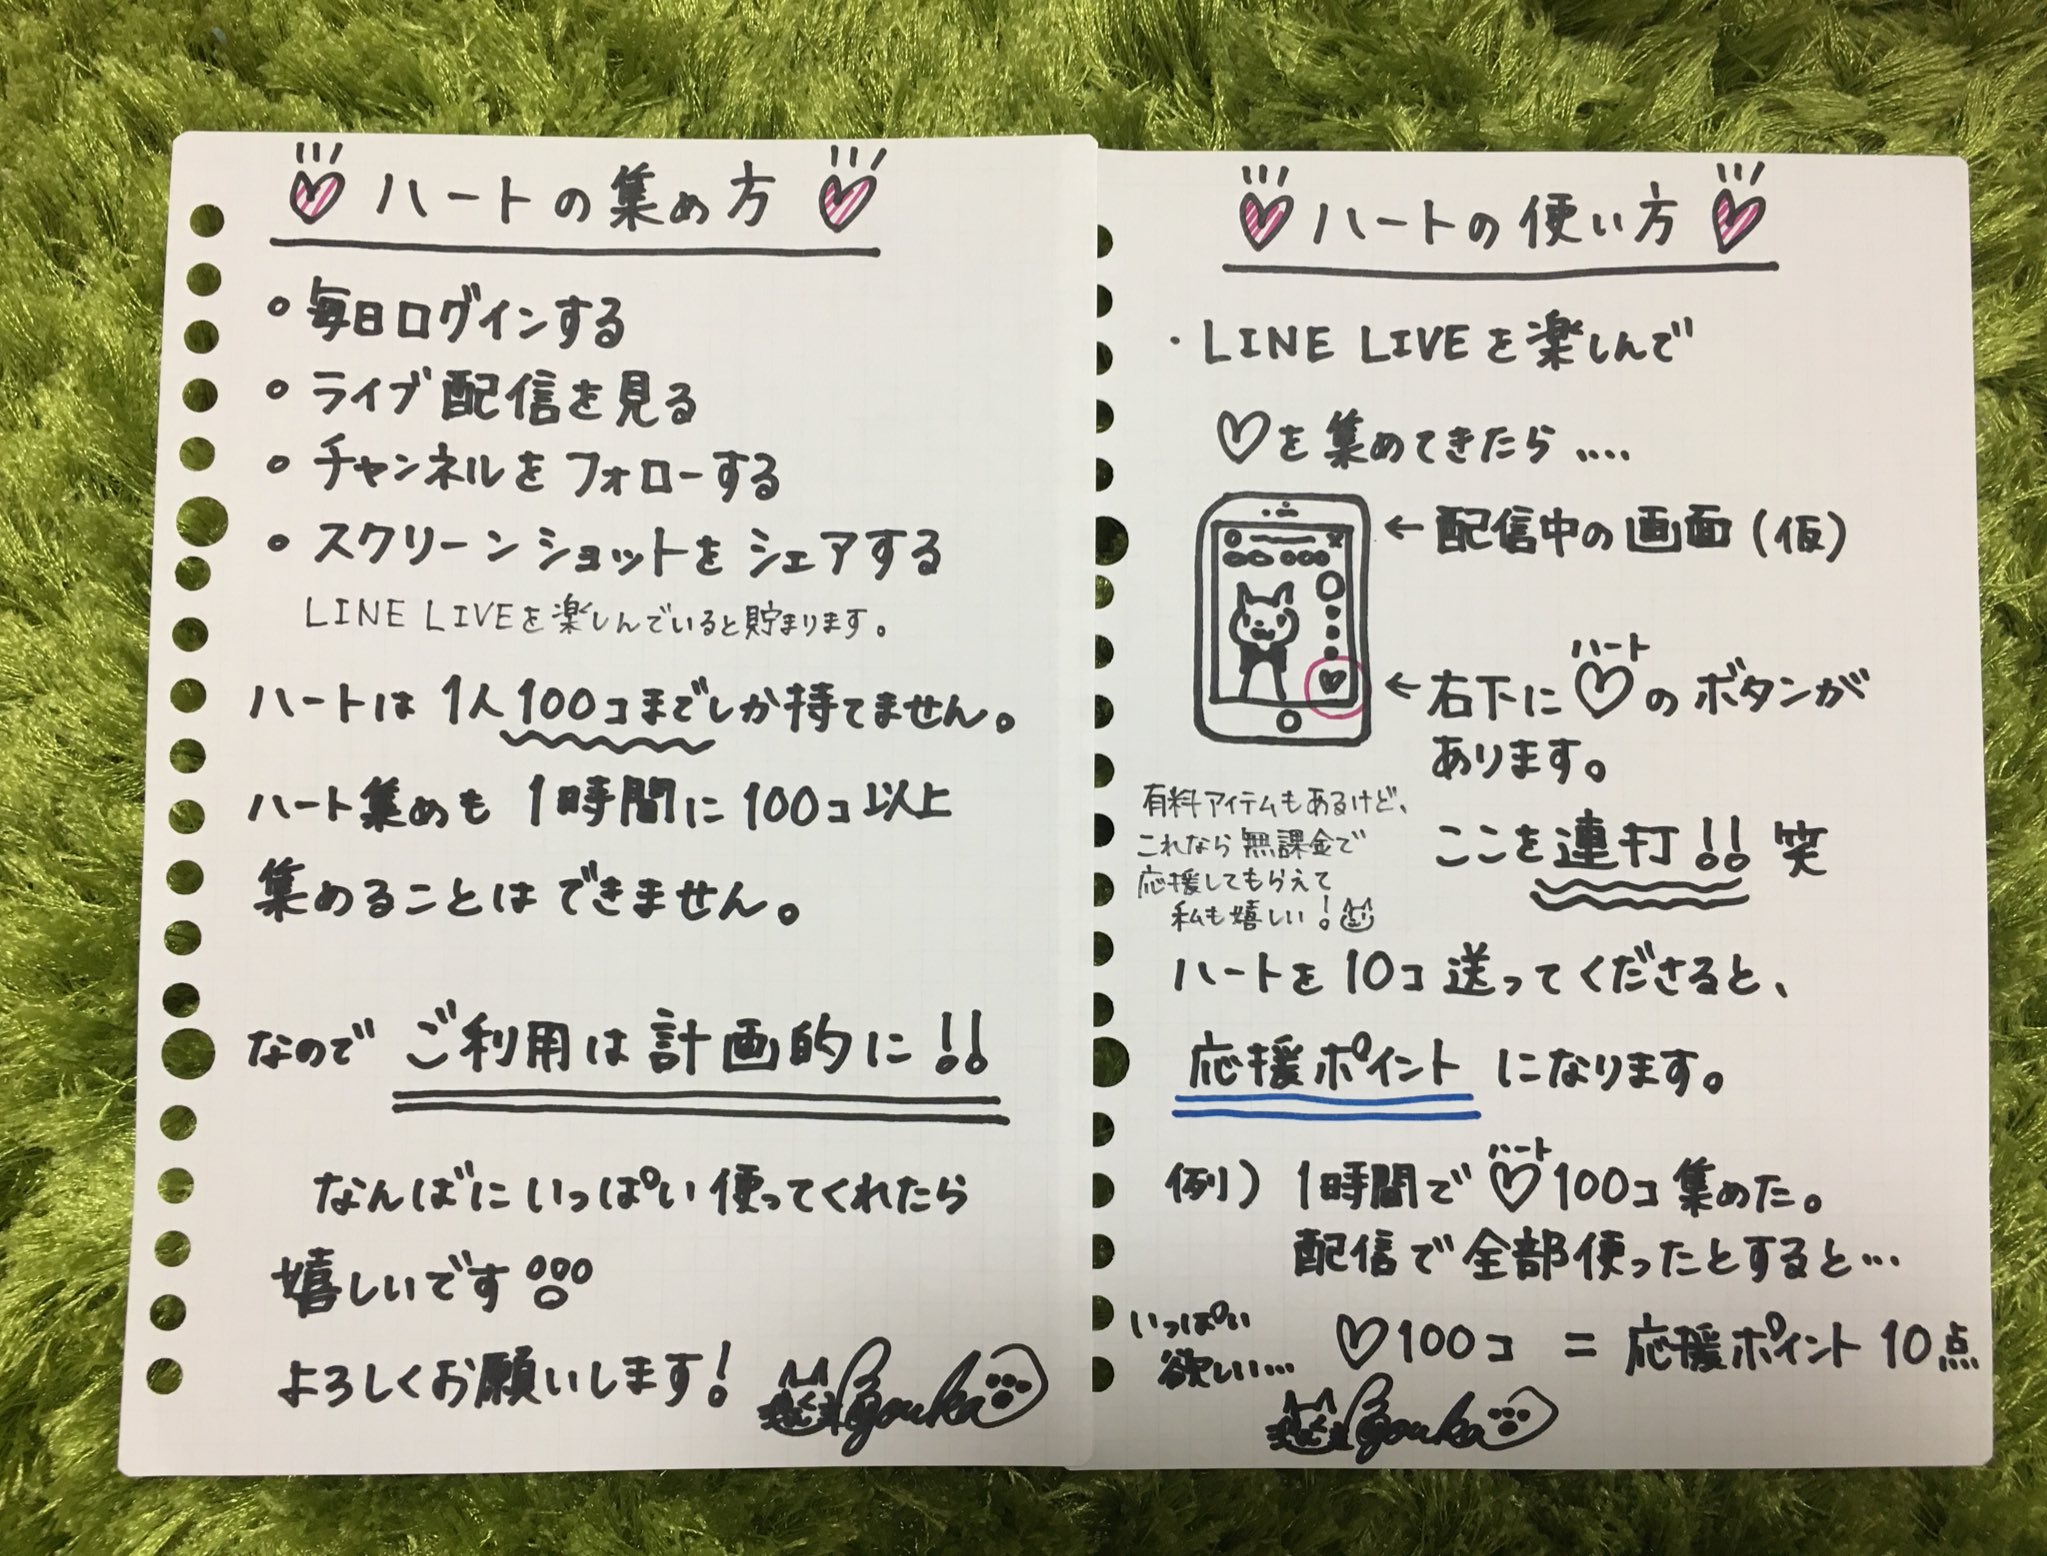 ハートの集め方
○毎日ログインする
○ライブ配信を見る
○チャンネルをフォローする
○スクリーンショットをシェアする
LINE LIVEを楽しんでいると貯まります。
ハートは1人100コまでしか持てません。
ハート集めも1時間に100コ以上
集めることはできません。
なのでご利用は計画的に!!
なんばにいっぱい使ってくれたら
嬉しいです
よろしくお願いします!
Ryouka
ハートの使い方
・LINE LIVEを楽しんで
♡を集めてきたら....
←配信中の画面(仮)
ハート
←右下に♡のボタンが
あります。
ここを連打!!笑
有料アイテムもあるけど、
これなら無課金で
応援してもらえて
私も嬉しい!
ハートを10コ送ってくださると、
応援ポイントになります。
ハート
例)1時間で♡100コ集めた。
配信で全部使ったとすると…
♡100コ=応援ポイント10点
いっぱい
欲しい…
Ryouka